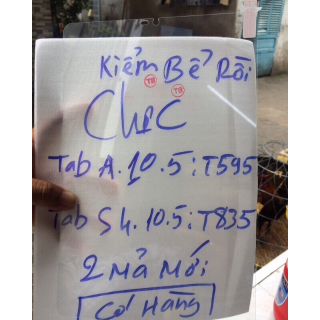 Kiểm Bể Rồi
Tab A.10.5:T595
Tab S4.10.5:T835
2 Mả Mới
Có Hàng